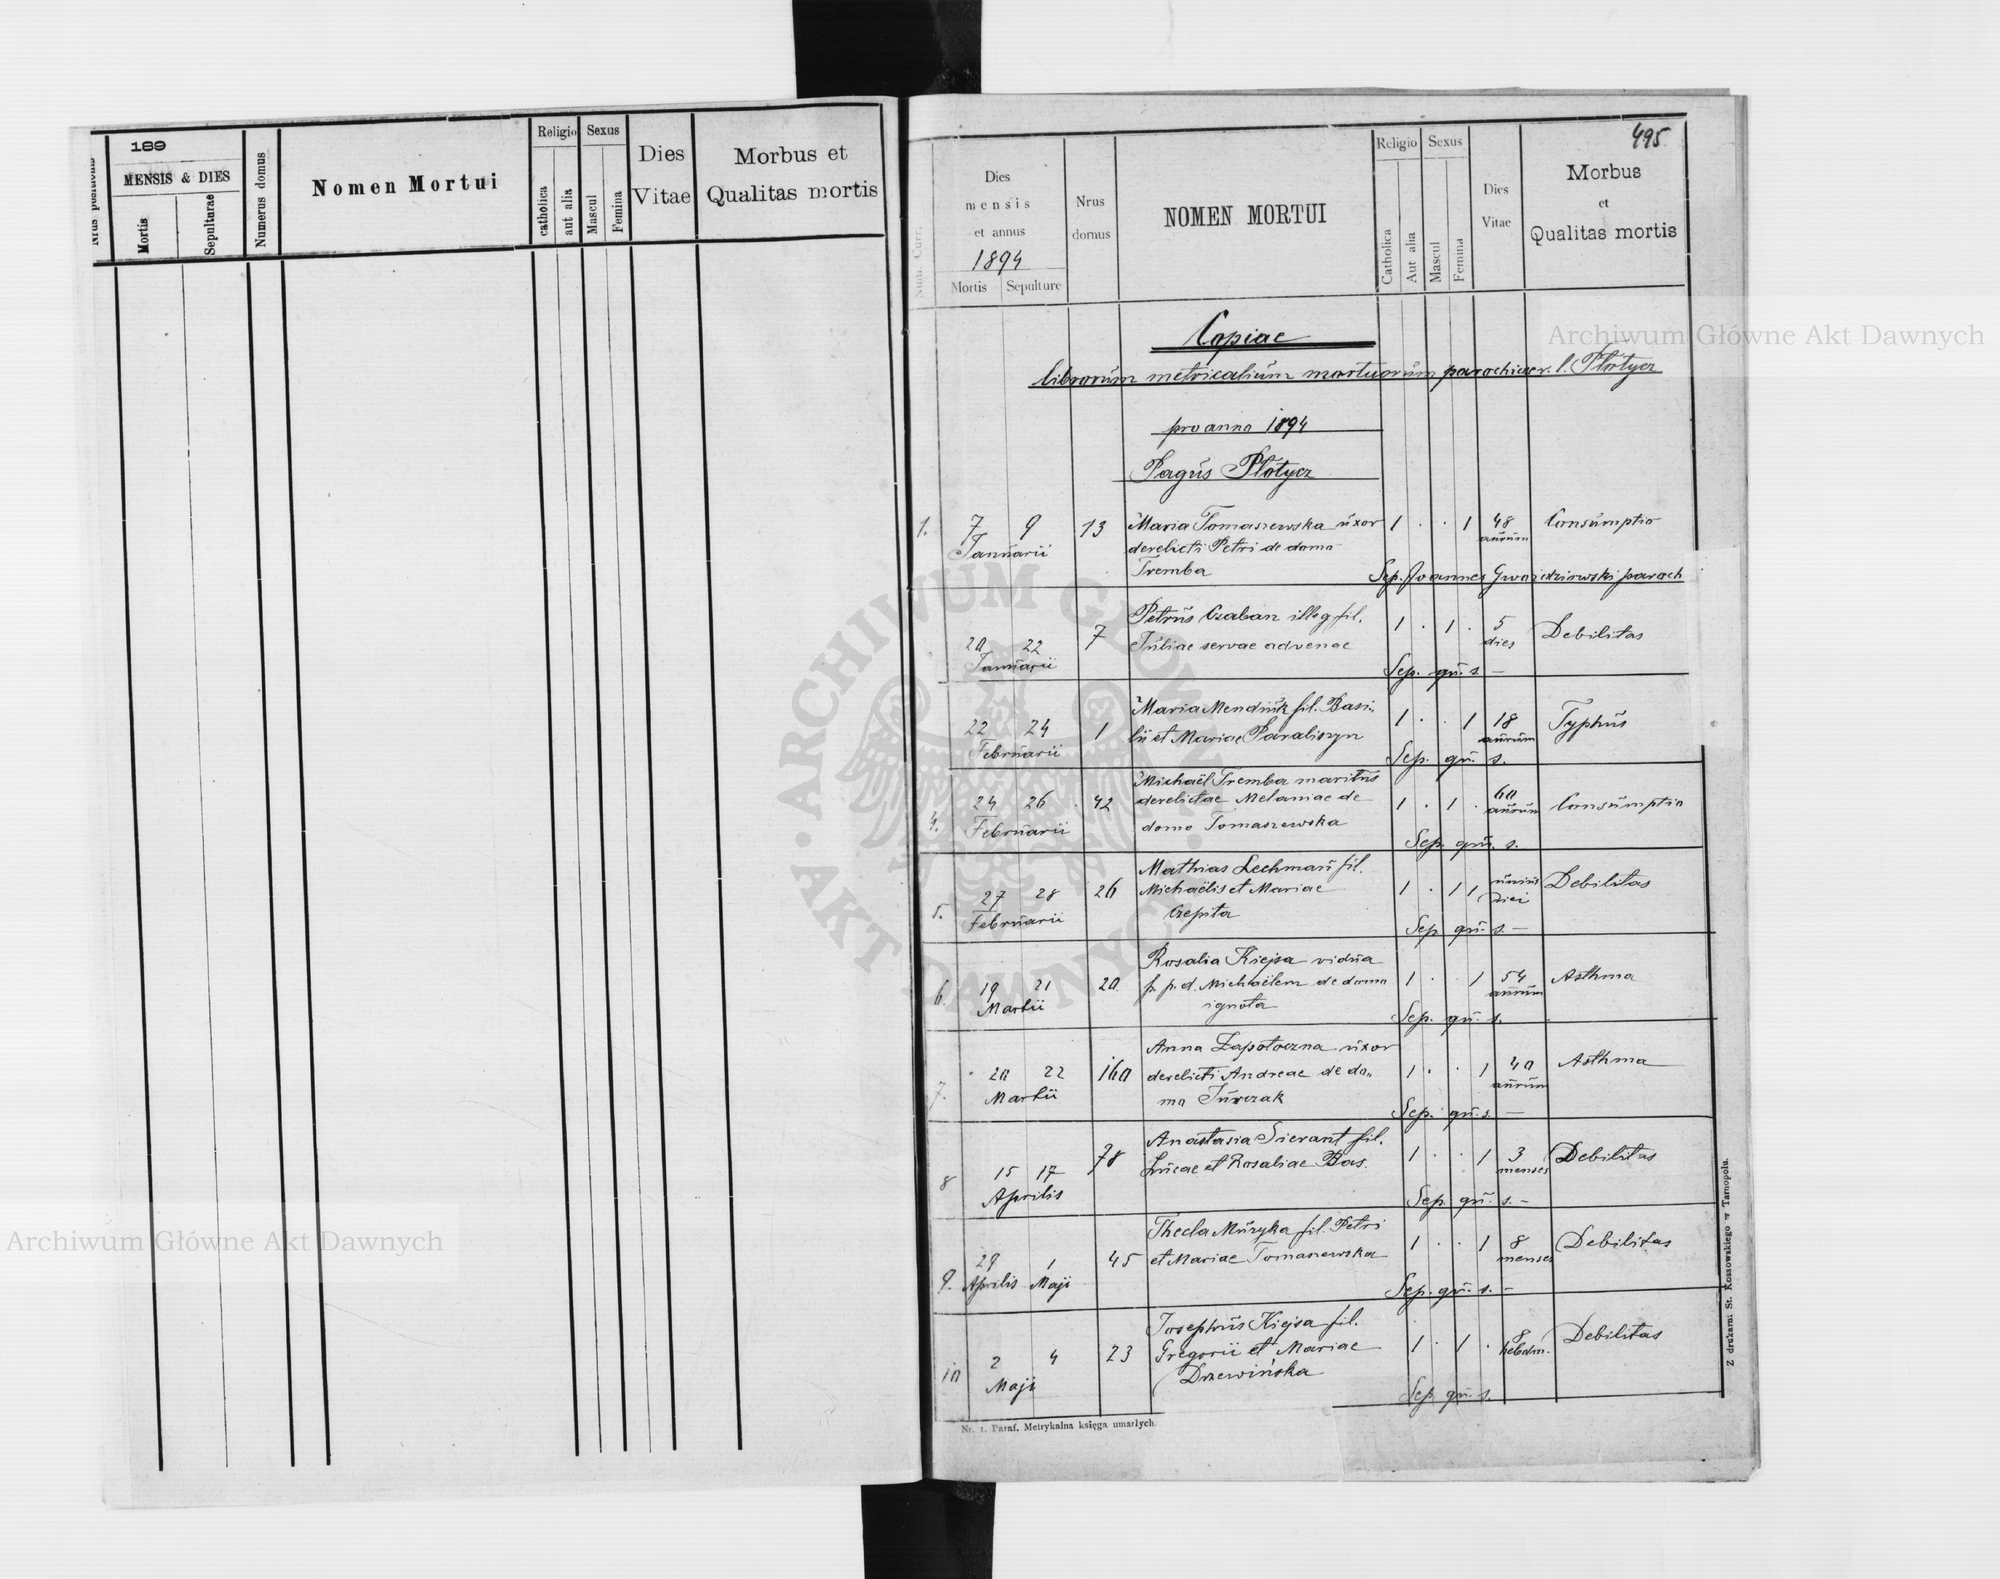 189
MENSIS & DIES
Mortis
Sepulturae
Numerus domus
Nomen Mortui
Religio
catholica
aut alia
Sexus
Mascul
Femina
Dies
Vitae
Morbus et
Qualitas mortis
495
Num. Curr.
Dies
mensis
et annus
1894
Mortis Sepulture
Nrus
domus
NOMEN MORTUI
Religio
Catholica
Aut alia
Sexus
Mascul
Femina
Dies
Vitae
Morbus
et
Qualitas mortis
Copiae
librorum metricalium mortuorum parochiae r. l. Płotycz
pro anno 1894
Pagus Płotycz
1. 7 9 13 Maria Tomaszewska uxor 1 . . 1 48 Consumptio
Januarii derelicti Petri de domo annorum
Tremba Sep. Joannes Gwoździowski paroch
20 22 7 Petrus Czaban illeg. fil. 1 . 1 . 5 Debilitas
Januarii Juliae servae advenae dies
Sep. qu. s. —
22 24 1 Maria Mendiuk fil. Basi„ 1 . . 1 18 Typhus
Februarii lii et Mariae Parabiszyn
Sep. qu. s.
4. 24 26 42 Michaël Tremba maritus 1 . 1 . 60 Consumptio
Februarii derelictae Melaniae de
domo Tomaszewska
Sep. qu. s.
5. 27 28 26 Mathias Lechman fil. 1 . 1 unius Debilitas
Februarii Michaëlis et Mariae diei
Czepita
Sep. qu. s. —
6. 19 21 20 Rosalia Kiejsa vidua 1 . . 1 54 Asthma
Martii p. p. d. Michaëlem de domo
ignota
Sep. qu. s.
7. 20 22 160 Anna Zapotoczna uxor 1 . . 1 40 Asthma
Martii derelicti Andreae de do„
mo Jurczak
Sep. qu. s. —
8 15 17 78 Anastasia Sierant fil. 1 . . 1 3 Debilitas
Aprilis Lucae et Rosaliae Bas. menses
Sep. qu. s. —
9. 29 1 45 Thecla Muzyka fil. Petri 1 . . 1 8 Debilitas
Aprilis Maji et Mariae Tomaszewska menses
Sep. qu. s. —
10 2 4 23 Josephus Kiejsa fil. 1 . 1 . 8 Debilitas
Maji Gregorii et Mariae hebdm.
Drzewińska
Sep. qu. s.
Nr. 1. Paraf. Metrykalna księga umarłych.
Z drukarni St. Kossowskiego w Tarnopolu.
Archiwum Główne Akt Dawnych
Archiwum Główne Akt Dawnych
ARCHIWUM GŁÓWNE AKT DAWNYCH